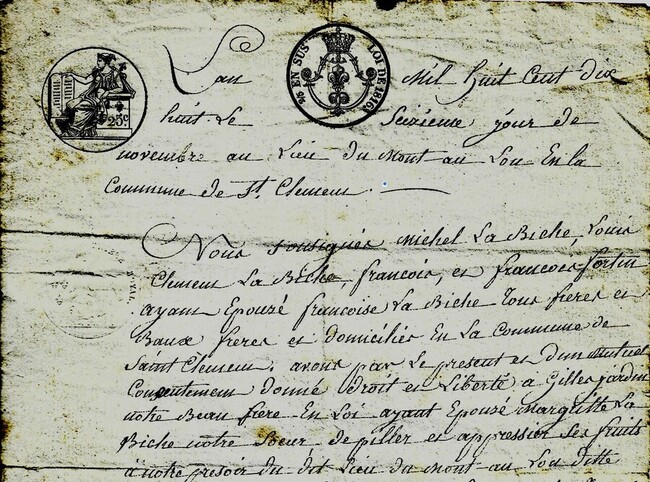 25c
¼ EN SUS LOI DE 1816
L'an Mil huit Cent dix
huit Le Seizieme jour de
novembre au Lieu du Mont au Lou En la
Commune de St. Clement.
Nous Soussignés Michel La Biche, Louis
Clement La Biche, francois, et francois fortin
ayant Epouzé francoise La Biche Tous freres et
Baux freres et domiciliés En La Commune de
Saint Clement. avons par Le present et d'un Mutuel
Consentement donné droit et Liberté a Gilles jardin
notre Beau frere En Loi ayant Epousé Margitte La
Biche notre Soeur de piller et appressier Ses fruits
a notre presoir du dit Lieu du Mont au Lou